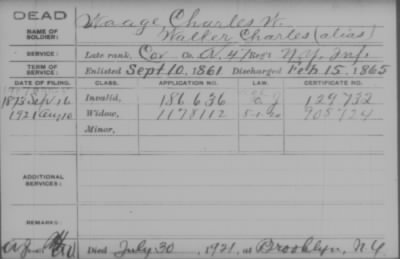 DEAD
NAME OF SOLDIER:
Waage Charles W.
Waller Charles (alias)
SERVICE:
Late rank, Cor Co. A, 47 Reg't N.Y. Inf.
TERM OF SERVICE:
Enlisted Sept 10, 1861 Discharged Feb 15, 1865
DATE OF FILING. CLASS. APPLICATION NO. LAW. CERTIFICATE NO.
Invalid, 186636 129732
1921 Aug 10 Widow, 1178112 905724
Minor,
ADDITIONAL SERVICES:
REMARKS:
Died July 30, 1921, at Brooklyn, N.Y.